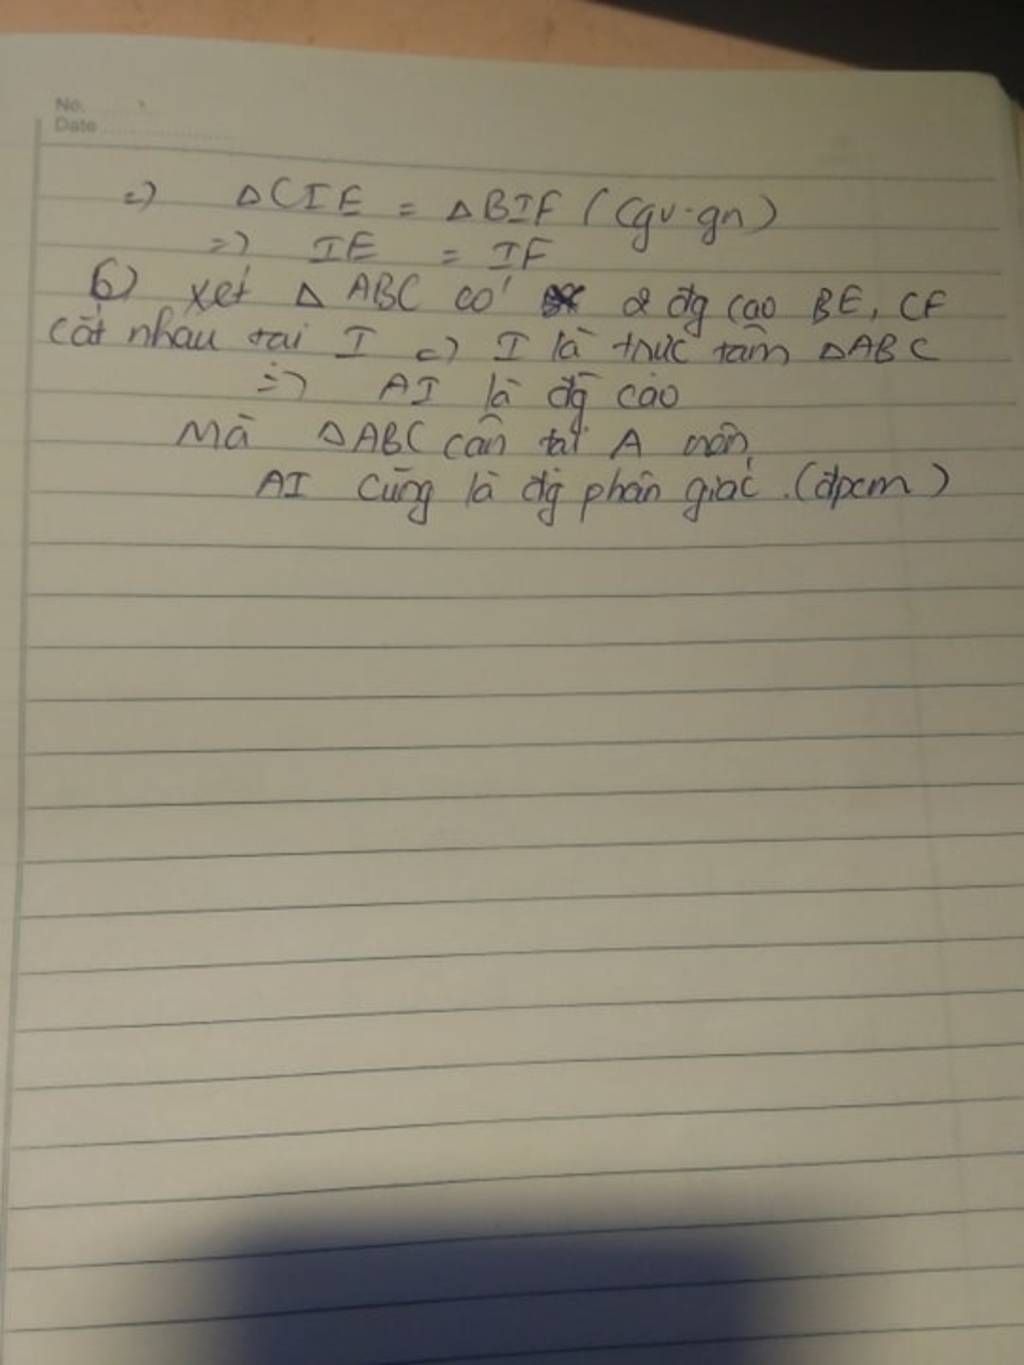 No.
Date
=> ΔCIE = ΔBIF (cgv-gn)
=> IE = IF
b) xét Δ ABC có 2 đg cao BE, CF
cắt nhau tại I => I là trực tâm ΔABC
=> AI là đg cao
Mà ΔABC cân tại A nên
AI cũng là đg phân giác. (đpcm)